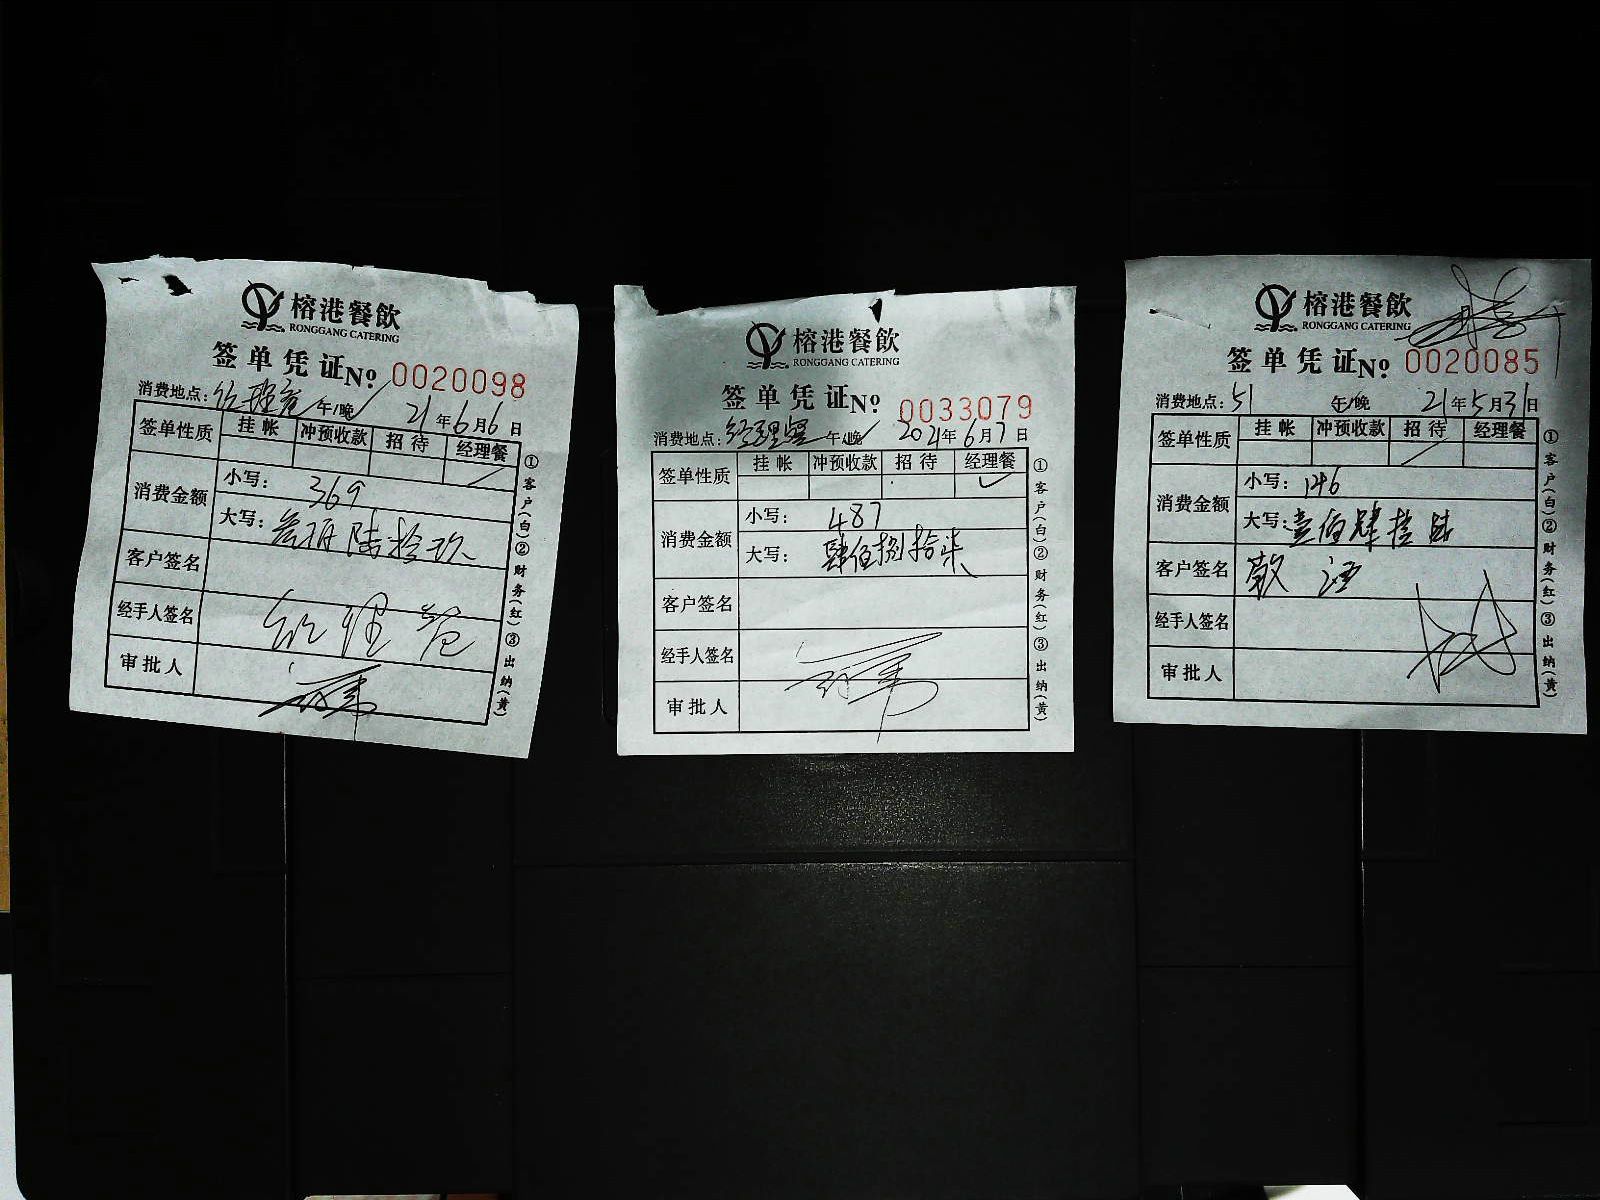 榕港餐飲
RONGGANG CATERING
签单凭证 No 0020098
消费地点: 午/晚 21年6月6日
签单性质 挂帐 冲预收款 招待 经理餐
消费金额 小写: 369
大写: 叁佰陆拾玖
客户签名
经手人签名 经理餐
审批人
①客户(白)②财务(红)③出纳(黄)
榕港餐飲
RONGGANG CATERING
签单凭证 No 0033079
消费地点: 午/晚 2021年6月7日
签单性质 挂帐 冲预收款 招待 经理餐
消费金额 小写: 487
大写: 肆佰捌拾柒
客户签名
经手人签名
审批人
①客户(白)②财务(红)③出纳(黄)
榕港餐飲
RONGGANG CATERING
签单凭证 No 0020085
消费地点: 51 午/晚 21年5月31日
签单性质 挂帐 冲预收款 招待 经理餐
消费金额 小写: 146
大写: 壹佰肆拾陆
客户签名 敬酒
经手人签名
审批人
①客户(白)②财务(红)③出纳(黄)